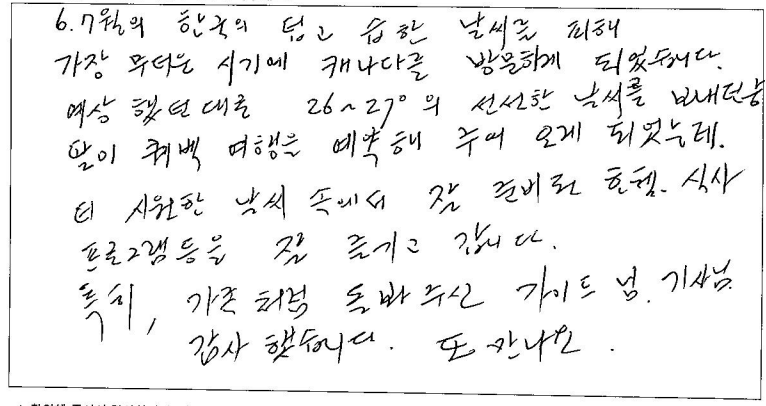 6.7월의 한국의 덥고 습한 날씨를 피해
가장 무더운 시기에 캐나다를 방문하게 되었습니다.
예상 했던대로 26~27°의 선선한 날씨를 보내던중
딸이 퀘백 여행을 예약해 주어 오게 되었는데.
더 시원한 날씨 속에서 잘 준비된 호텔. 식사
프로그램등을 잘 즐기고 갑니다.
특히, 가족처럼 돌봐주신 가이드 님. 기사님.
감사 했습니다. 또 만나요.